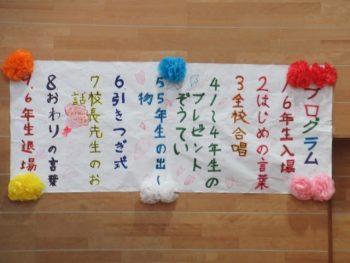 プログラム
1 6年生入場
2 はじめの言葉
3 全校合唱
4 1〜4年生の
プレゼント
ぞうてい
5 5年生の出し
物
6 引きつぎ式
7 校長先生のお
話
8 おわりの言葉
9 6年生退場